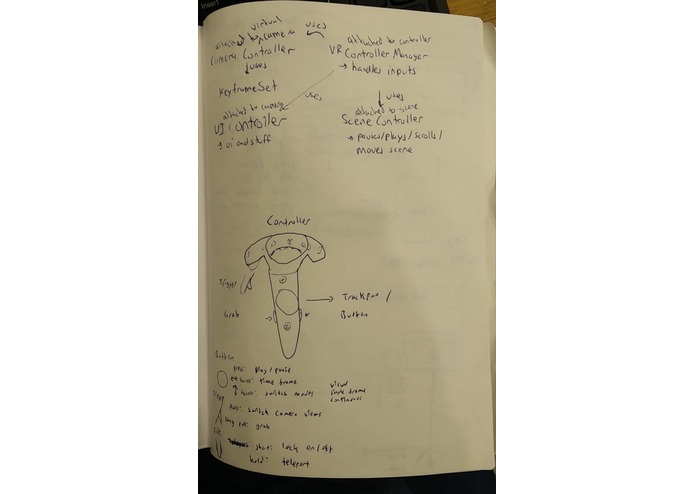 Insert
virtual
attached to camera
Camera Controller
uses
attached to controller
VR Controller Manager
→ handles inputs
↓ uses
KeyframeSet
uses
attached to camera
UI Controller
→ ui and stuff
↓ uses
attached to scene
Scene Controller
→ pauses/plays/scrolls/
moves scene
Controller
Trigger
Grab
→ Trackpad /
Button
Button
press: play/pause
swipe: time frame
switch modes
view
single frame
continuous
pull: switch camera views
long pull: grab
short: lock on/off
hold: teleport